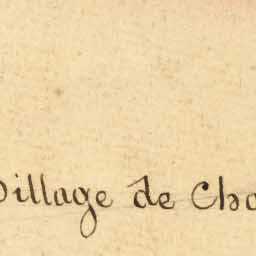 Village de Cha